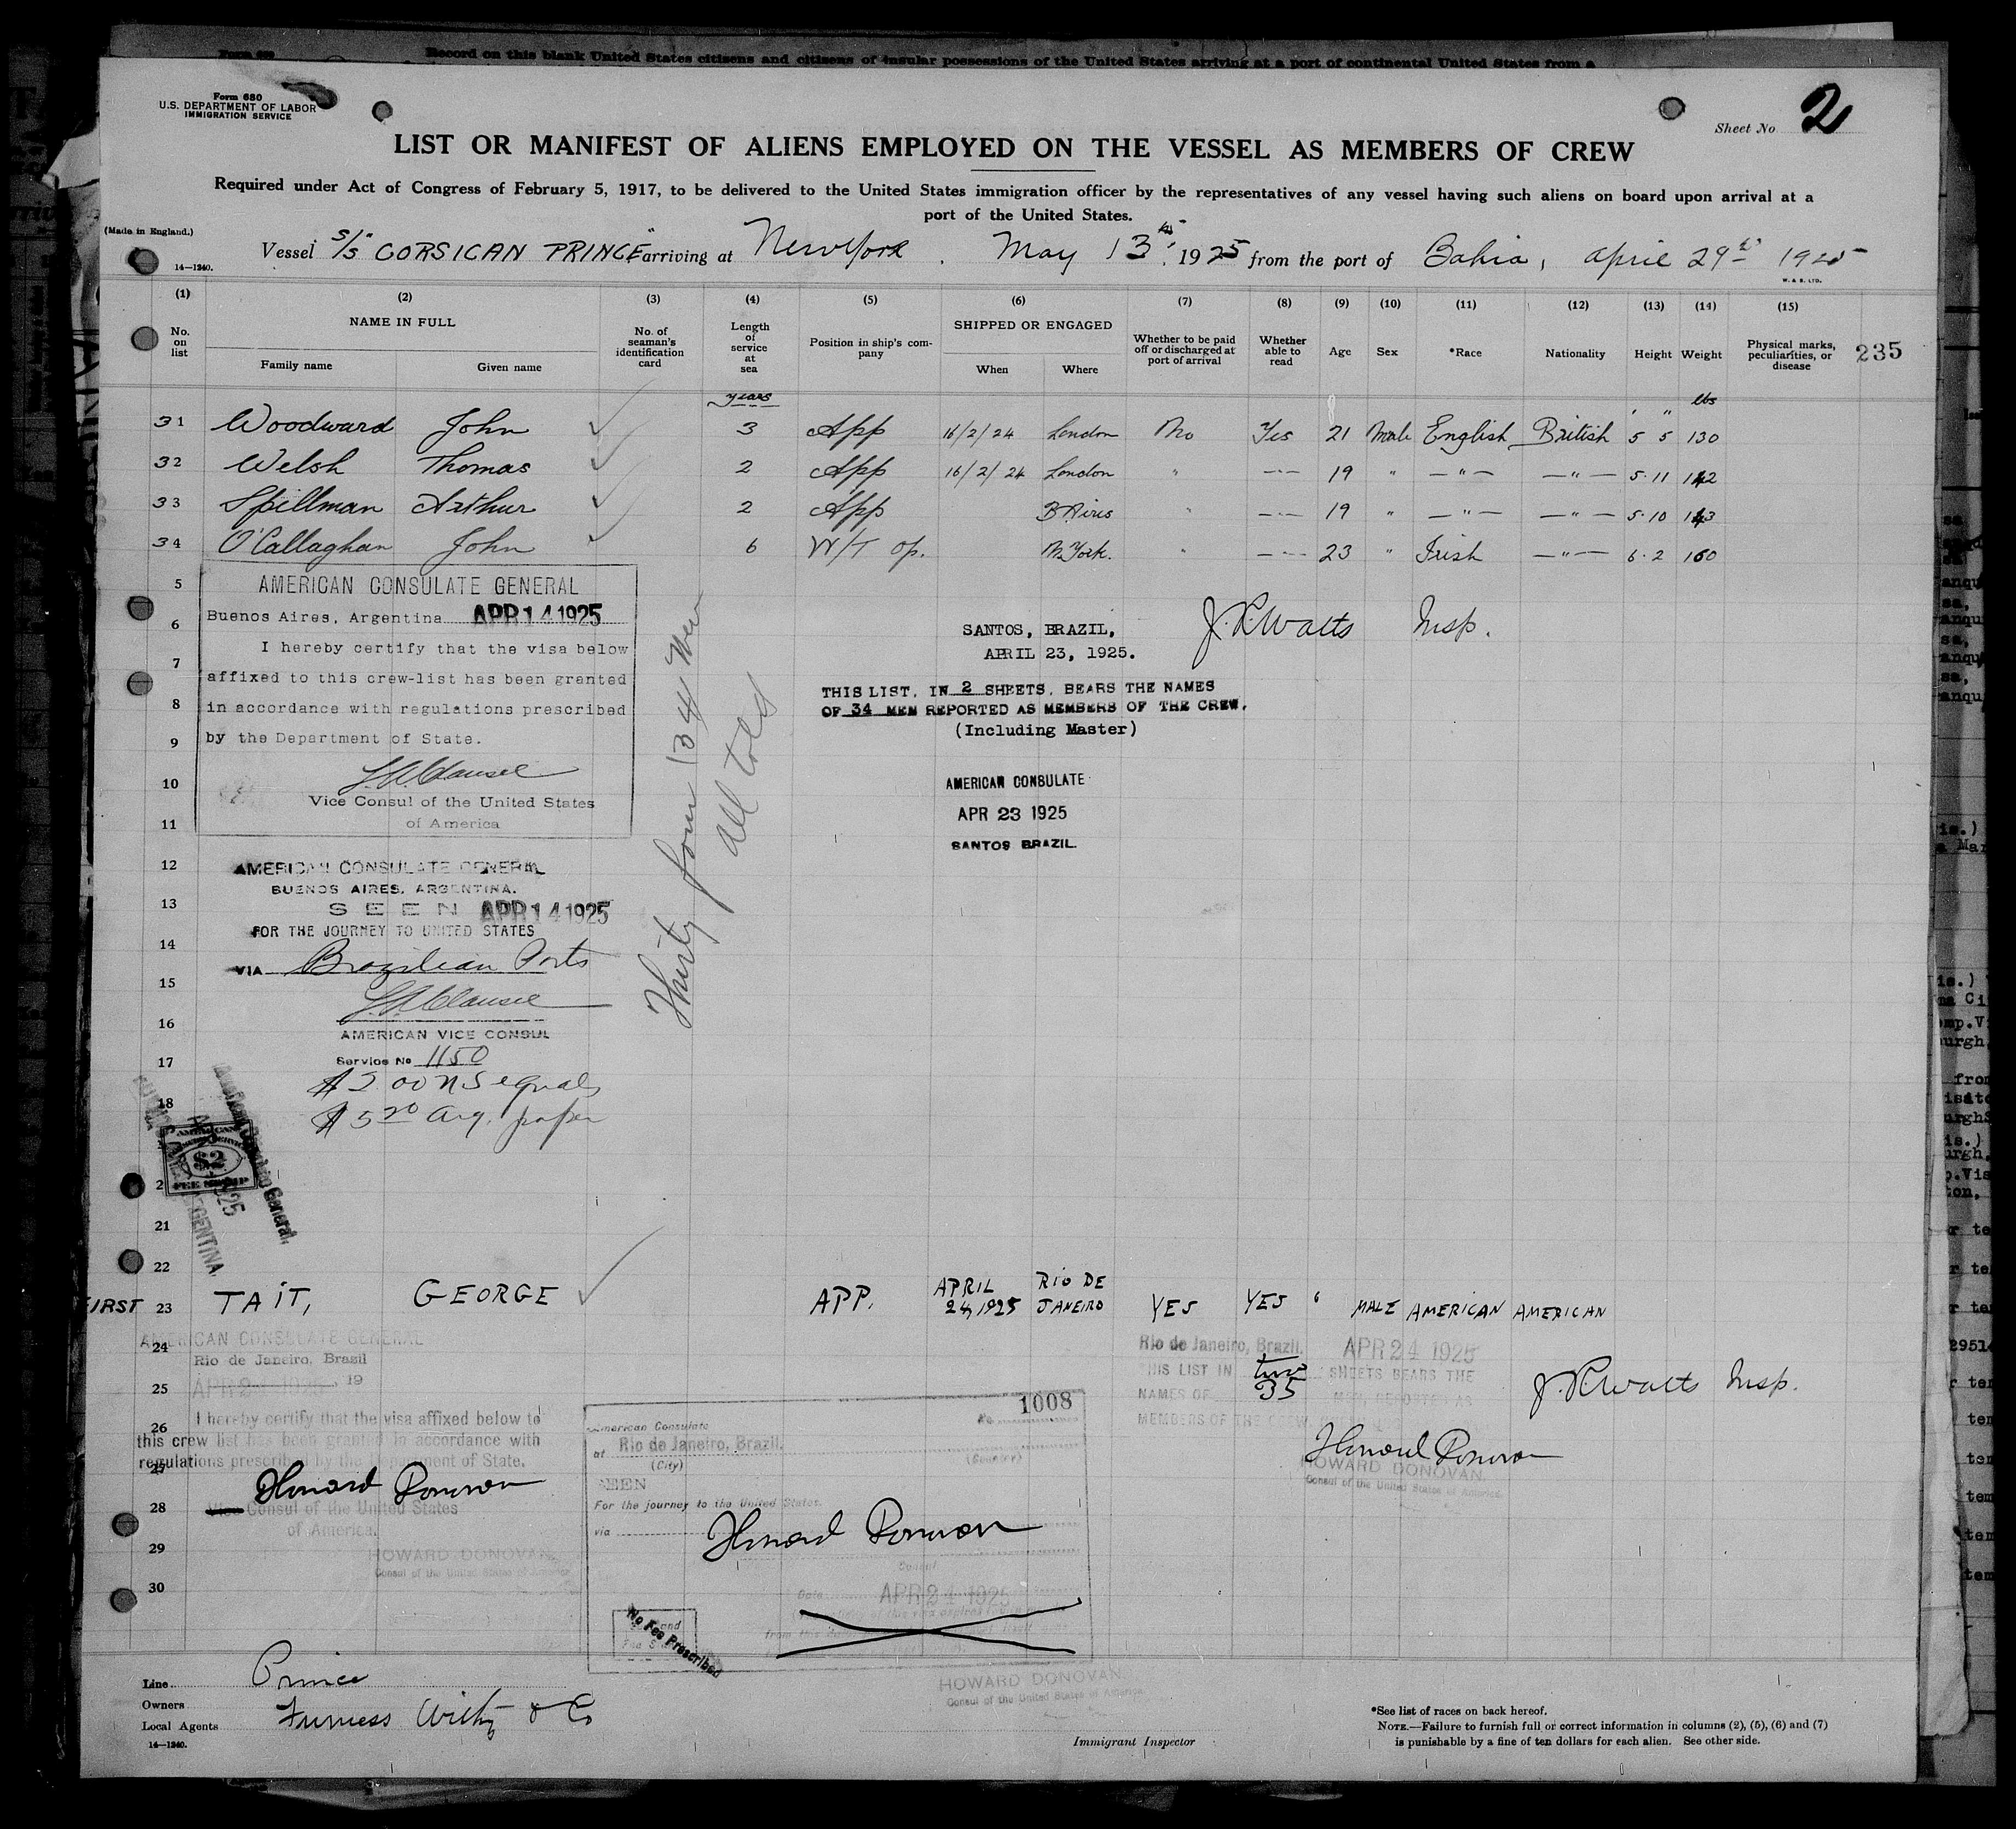 Record on this blank United States citizens and citizens of insular possessions of the United States arriving at a port of continental United States from a
Form 680
U.S. DEPARTMENT OF LABOR
IMMIGRATION SERVICE
Sheet No 2
LIST OR MANIFEST OF ALIENS EMPLOYED ON THE VESSEL AS MEMBERS OF CREW
Required under Act of Congress of February 5, 1917, to be delivered to the United States immigration officer by the representatives of any vessel having such aliens on board upon arrival at a
port of the United States.
(Made in England.)
14—1240.
Vessel S/S "CORSICAN PRINCE" arriving at New York. May 13th, 1925 from the port of Bahia, April 29th 1925
W. & S. LTD.
(1) (2) (3) (4) (5) (6) (7) (8) (9) (10) (11) (12) (13) (14) (15)
No. on list
NAME IN FULL
Family name Given name
No. of seaman's identification card
Length of service at sea
Position in ship's company
SHIPPED OR ENGAGED
When Where
Whether to be paid off or discharged at port of arrival
Whether able to read
Age Sex *Race Nationality Height Weight
Physical marks, peculiarities, or disease
235
years ' " lbs
31 Woodward John 3 App 16/2/24 London No Yes 21 Male English British 5 5 130
32 Welsh Thomas 2 App 16/2/24 London " —"— 19 " —"— —"— 5·11 142
33 Spillman Arthur 2 App B Aires " —"— 19 " —"— —"— 5·10 143
34 O'Callaghan John 6 W/T op. N. York. " —"— 23 " Irish —"— 6·2 160
5
6
7
8
9
10
11
12
13
14
15
16
17
18
21
22
AMERICAN CONSULATE GENERAL
Buenos Aires, Argentina APR 14 1925
I hereby certify that the visa below
affixed to this crew-list has been granted
in accordance with regulations prescribed
by the Department of State.
Vice Consul of the United States
of America
Thirty four (34) Men
all told
SANTOS, BRAZIL,
APRIL 23, 1925.
J. R. Watts Insp.
THIS LIST, IN 2 SHEETS, BEARS THE NAMES
OF 34 MEN REPORTED AS MEMBERS OF THE CREW.
(Including Master)
AMERICAN CONSULATE
APR 23 1925
SANTOS BRAZIL
AMERICAN CONSULATE GENERAL
BUENOS AIRES, ARGENTINA.
SEEN APR 14 1925
FOR THE JOURNEY TO UNITED STATES
VIA Brazilian Ports
AMERICAN VICE CONSUL
Service No 1150
$2.00 US equals
$5 20 Arg. paper
AMERICAN
$2
FEE STAMP
American Consulate General,
ARGENTINA
FIRST 23 TAIT, GEORGE APP. APRIL 24, 1925 RIO DE JANEIRO YES YES " MALE AMERICAN AMERICAN
24
25
26
27
28
29
30
AMERICAN CONSULATE GENERAL
Rio de Janeiro, Brasil
APR 24 1925, 19
I hereby certify that the visa affixed below to
this crew list has been granted in accordance with
regulations prescribed by the Department of State.
Howard Donovan
Vice Consul of the United States
of America.
HOWARD DONOVAN
Consul of the United States of America
1008
American Consulate No
at Rio de Janeiro, Brazil.
(City) (Country)
SEEN
For the journey to the United States.
via
Howard Donovan
Consul
Date APR 24 1925
No Fee Prescribed
HOWARD DONOVAN
Consul of the United States of America
Rio de Janeiro, Brazil. APR 24 1925
THIS LIST IN two SHEETS BEARS THE
NAMES OF 35 MEN, REPORTED AS
MEMBERS OF THE CREW.
J. R. Watts Insp.
Howard Donovan
HOWARD DONOVAN
Consul of the United States of America
Line Prince
Owners
Local Agents Furness Withy & Co
14—1240.
Immigrant Inspector
*See list of races on back hereof.
NOTE.—Failure to furnish full or correct information in columns (2), (5), (6) and (7)
is punishable by a fine of ten dollars for each alien. See other side.